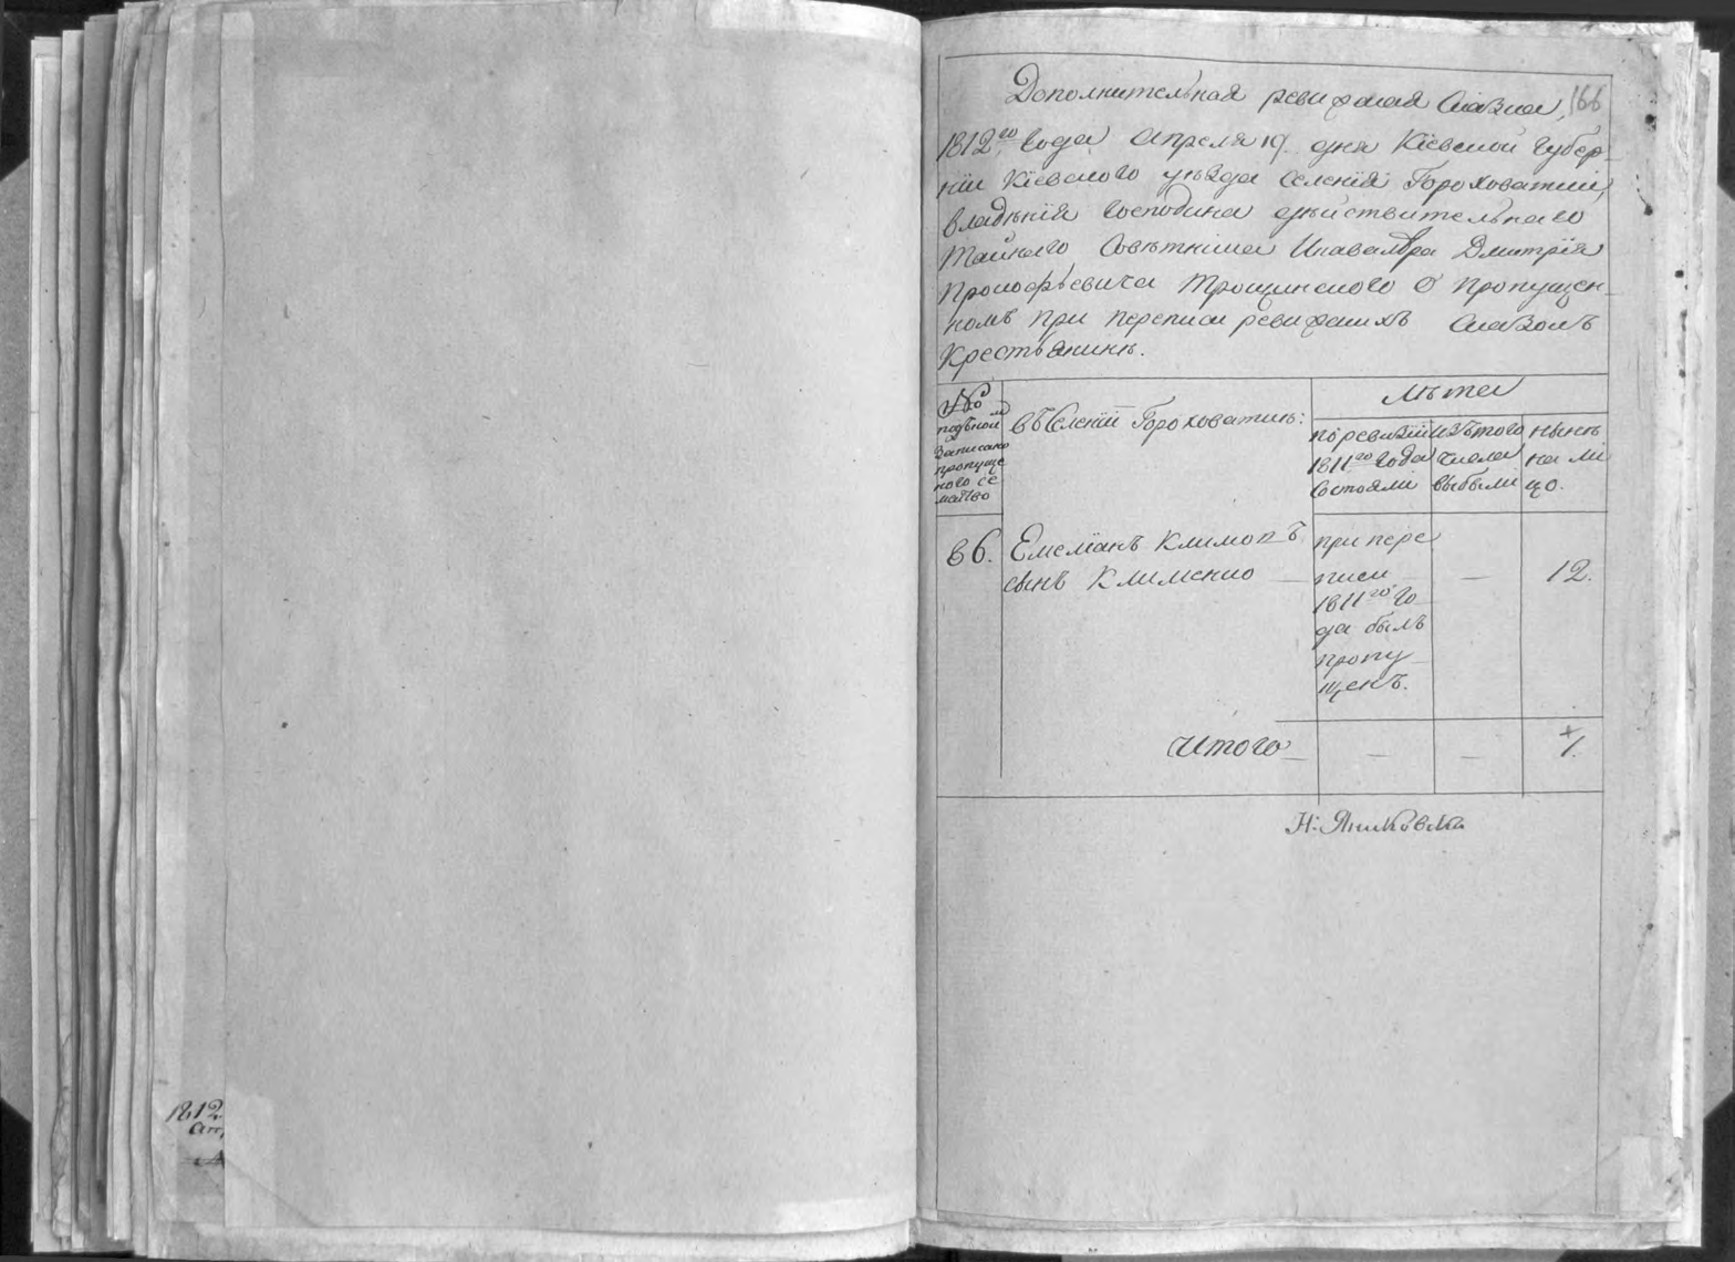 Дополнительная ревижская сказка, 166
1812го года апреля 19 дня Кіевской губер
ніи Кіевского уѣзда селенія Гороховатки,
владѣнія господина дѣйствительнаго
тайнаго совѣтника и кавалера Дмитрія
Прокофьевича Трощинского о пропущен
номъ при переписи ревижскихъ сказокъ
крестьянинѣ.
№
подъ кои
м
записано
пропуще
ного се
мейство
въ селеніи Гороховаткѣ:
лѣта
по ревизіи
1811го года
состояли
изъ того
числа
выбыли
нынѣ
на ли
цо.
в 6.
Емеліанъ Климовъ
сынъ Клименко
при пере
писи
1811го го
да былъ
пропу
щенъ.
—
12.
итого — — 1.
Н: Янковскій
1812
апр